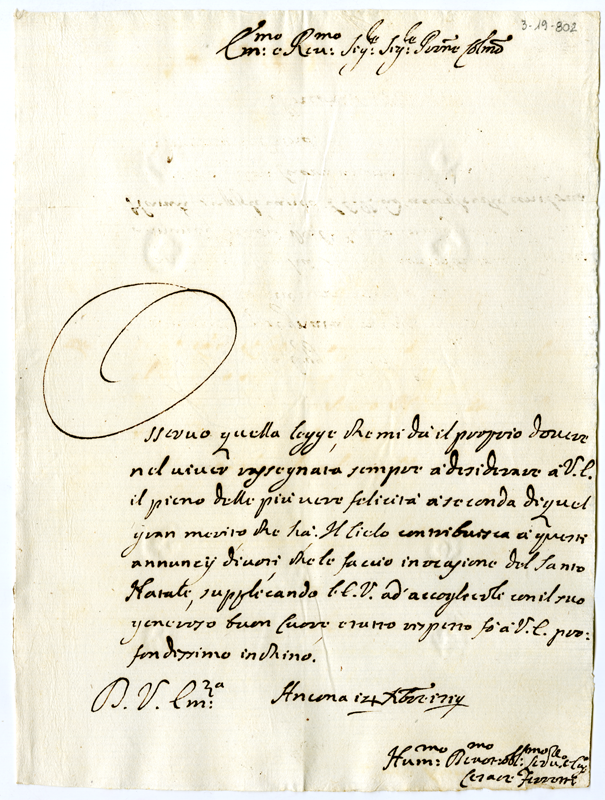 3-19-802
Em:mo e Reu:mo Sig:re Sig:re Prōne Colmō
Osseruo quella legge, che mi dà il proprio douere
nel uiuer rassegnata sempre a desiderare à V. E.
il pieno delle più uere felicità a seconda di quel
gran merito che hà. Il Cielo contribuisca a questi
annuncij diuoti, che le faccio in ocasione del Santo
Natale, supplicando l'E.V. ad' accoglierle con il suo
generoso buon Cuore, e tutto rispetto fò à V. E. pro-
fondissimo inchino.
D. V. Em:za Ancona 14 Xbre
Hum:mo Deuot:mo
Cesare